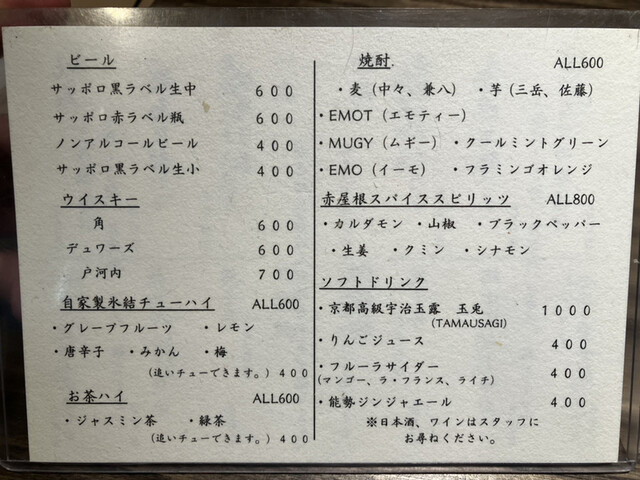 ビール
サッポロ黒ラベル生中 600
サッポロ赤ラベル瓶 600
ノンアルコールビール 400
サッポロ黒ラベル生小 400
ウイスキー
角 600
デュワーズ 600
戸河内 700
自家製氷結チューハイ ALL600
・グレープフルーツ ・レモン
・唐辛子 ・みかん ・梅
(追いチューできます。) 400
お茶ハイ ALL600
・ジャスミン茶 ・緑茶
(追いチューできます。) 400
焼酎. ALL600
・麦（中々、兼八） ・芋（三岳、佐藤）
・EMOT（エモティー）
・MUGY（ムギー） ・クールミントグリーン
・EMO（イーモ） ・フラミンゴオレンジ
赤屋根スパイススピリッツ ALL800
・カルダモン ・山椒 ・ブラックペッパー
・生姜 ・クミン ・シナモン
ソフトドリンク
・京都高級宇治玉露 玉兎 1000
(TAMAUSAGI)
・りんごジュース 400
・フルーラサイダー 400
(マンゴー、ラ・フランス、ライチ)
・能勢ジンジャエール 400
※日本酒、ワインはスタッフに
お尋ねください。